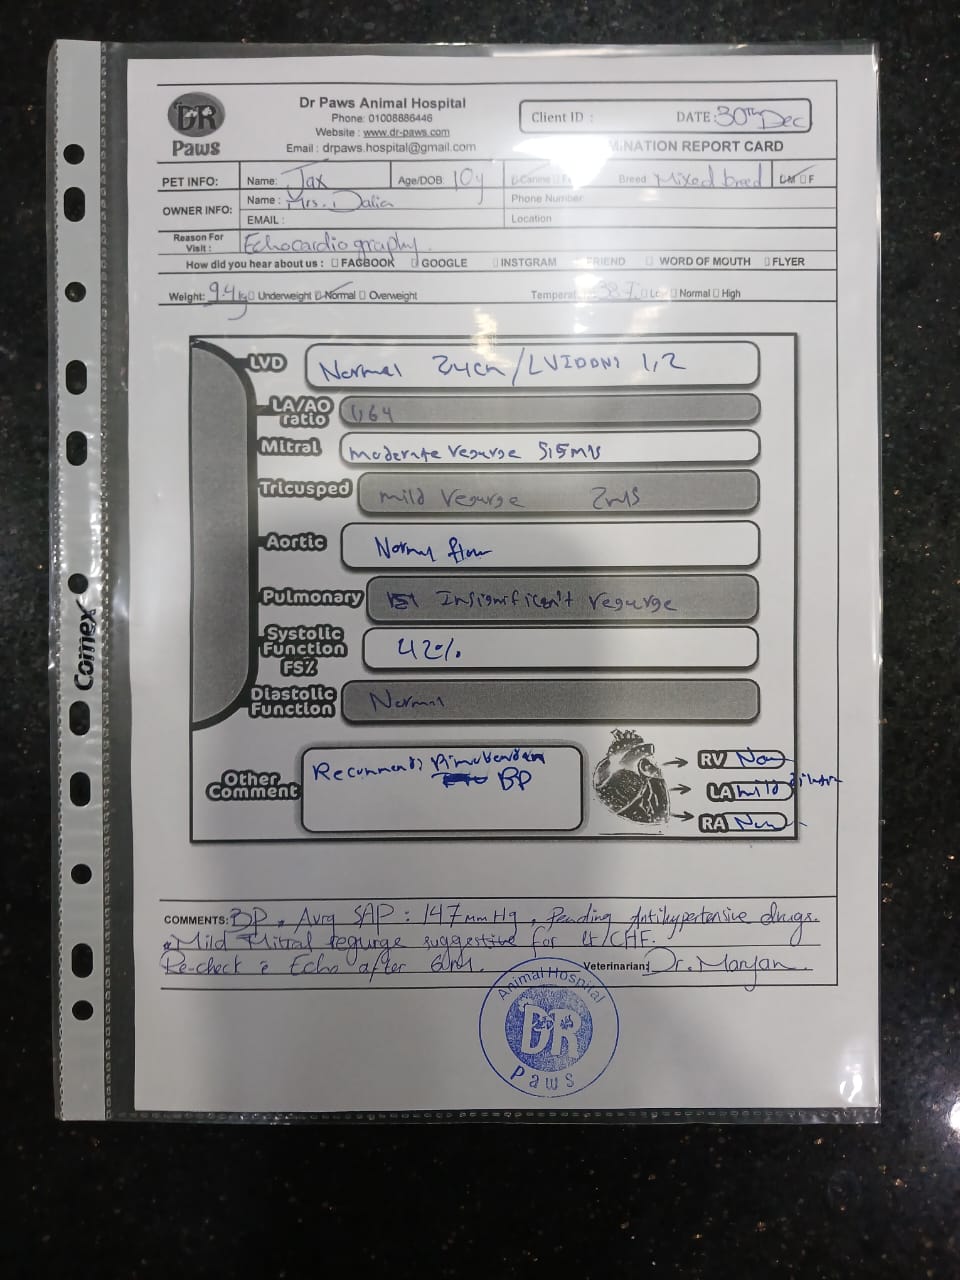 DR
Paws
Dr Paws Animal Hospital
Phone: 01008886446
Website : www.dr-paws.com
Email : drpaws.hospital@gmail.com
Client ID :
DATE: 30th Dec
MINATION REPORT CARD
PET INFO: Name: Jax Age/DOB: 10y Canine Breed Mixed breed M F
OWNER INFO: Name : Mrs. Dalia Phone Number
EMAIL : Location
Reason For Visit : Echocardiography.
How did you hear about us : FACBOOK GOOGLE INSTGRAM FRIEND WORD OF MOUTH FLYER
Weight: 9.4 kg Underweight Normal Overweight Temperat 38.7 Normal High
LVD Normal 24cm /LVIDDN: 1,2
LA/AO ratio 1,64
Mitral moderate regurge 5,5m/s
Tricusped mild regurge 2m/s
Aortic Normal flow
Pulmonary Insignificant regurge
Systolic Function FS% 42%
Diastolic Function Normal
Other Comment Recommend: Pimobendan
BP
RV
LA mild
RA
COMMENTS: BP. Avrg SAP : 147 mmHg, Pending Antihypertensive drugs.
Mild Mitral regurge suggestive for CHF.
Re-check Echo after
Veterinarian: Dr. Maryan
Animal Hospital
DR
Paws
Comex